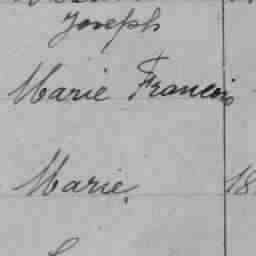 Joseph
Marie Francois
Marie. 18